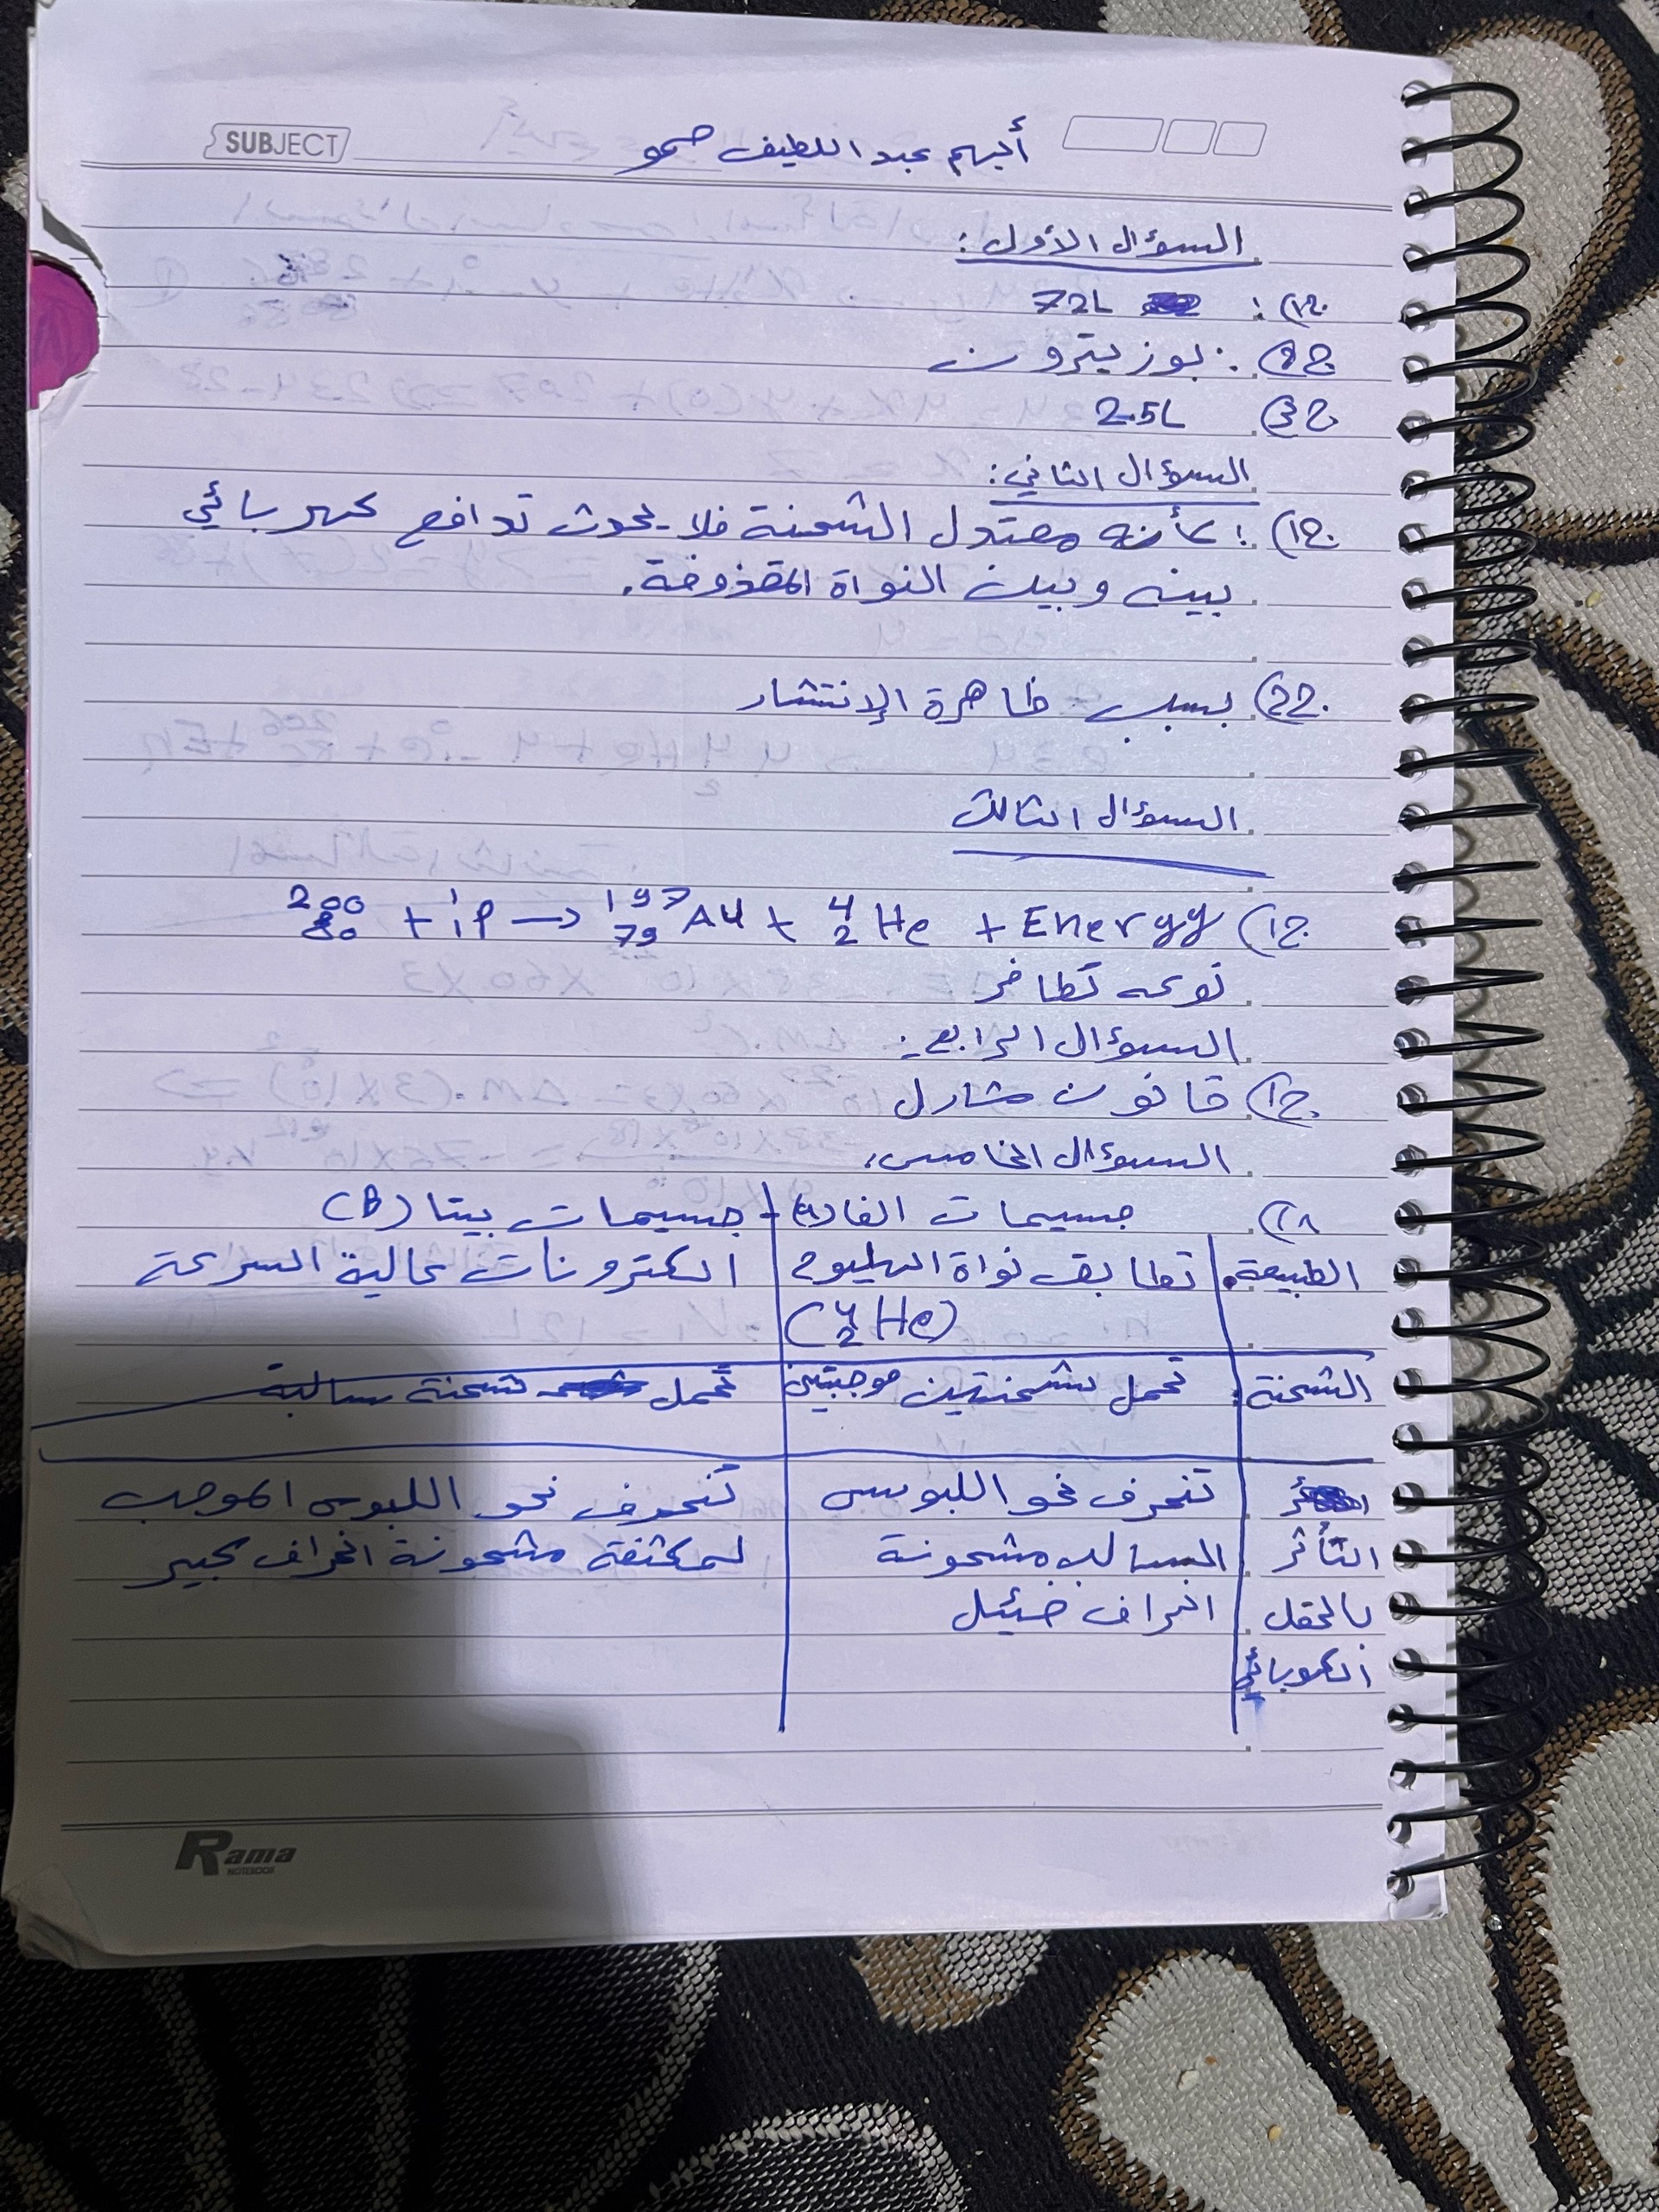 SUBJECT
أيهم عبد اللطيف حمو
السؤال الأول:
ج1) : 72L
ج2) : بوزيترون
ج3) 2.5L
السؤال الثاني:
ج1) : لأنه معتدل الشحنة فلا يحدث تدافع كهربائي
بينه وبين النواة المقذوفة.
ج2) بسبب ظاهرة الإنتشار
السؤال الثالث
ج1) ²⁰⁰₈₀ + ¹₁P → ¹⁹⁷₇₉Au + ⁴₂He + Energy
نوعه تطافر
السؤال الرابع:
ج1) قانون شارل
السؤال الخامس:
ج1) جسيمات الفا (α) جسيمات بيتا (B)
الطبيعة تطابق نواة الهليوم الكترونات عالية السرعة
(⁴₂He)
الشحنة: تحمل شحنتين موجبتين تحمل شحنة سالبة
تنحرف نحو اللبوس تنحرف نحو اللبوس الموجب
التأثر السالب مشحونة لمكثفة مشحونة انحراف كبير
بالحقل انحراف ضئيل
الكهربائي
Rama
NOTEBOOK